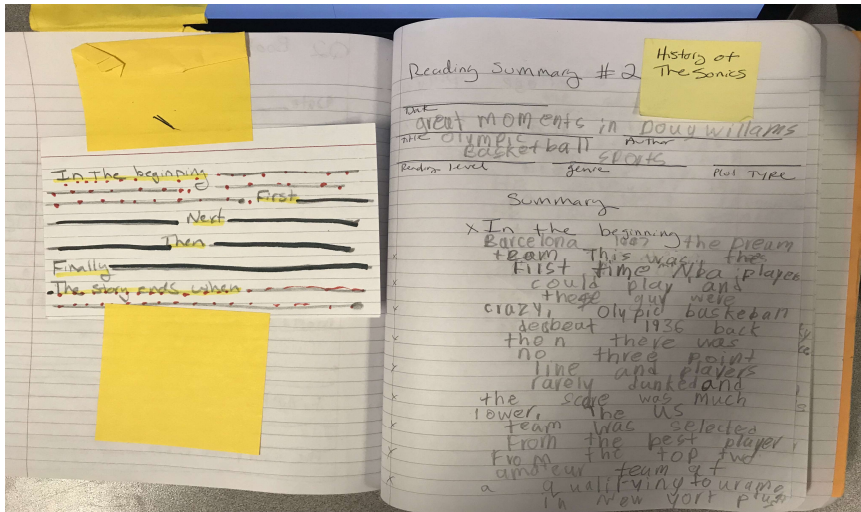 In the beginning
First
Next
Then
Finally
The story ends when
History of
The Sonics
Reading Summary #2
great moments in Doug Willams
Title Olympic Author
Basketball sports
Reading Level genre Plot Type
Summary
x In the beginning
Barcelona the Dream
team This was the
First time Nba player
could play and
these guy were
crazy, Olypic baskeball
debeat 1936 back
then there was
no three point
line and players
rarely dunked and
the score was much
lower, The US
team was selected
From the best player
From the top two
amateur team at
a qualifying tourame
in New York